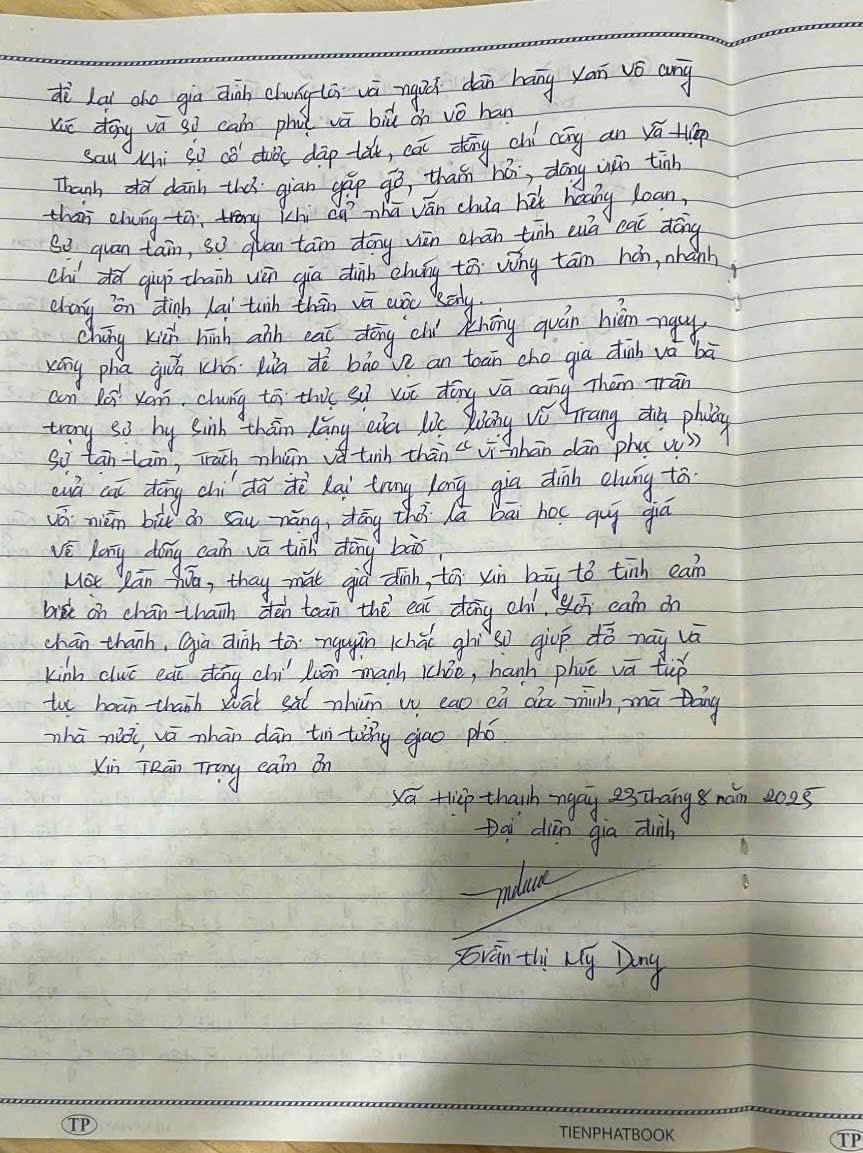 để lại cho gia đình chúng tôi và người dân hàng xóm vô cùng
xúc động và sự cảm phục và biết ơn vô hạn
Sau khi sự cố được dập tắt, các đồng chí công an xã Hiệp
Thạnh đã dành thời gian gặp gỡ, thăm hỏi, động viên tinh
thần chúng tôi, trong khi cả nhà vẫn chưa hết hoảng loạn,
Sự quan tâm, sự quan tâm động viên chân tình của các đồng
chí đã giúp thành viên gia đình chúng tôi vững tâm hơn, nhanh
chóng ổn định lại tinh thần và cuộc sống.
Chứng kiến hình ảnh các đồng chí không quản hiểm nguy,
xông pha giữa khói lửa để bảo vệ an toàn cho gia đình và bà
con lối xóm. chúng tôi thực sự xúc động và càng Thêm Trân
trọng sự hy sinh thầm lặng của lực lượng vũ Trang địa phương
Sự tận tâm, Trách nhiệm và tinh thần "vì nhân dân phục vụ"
của các đồng chí đã để lại trong lòng gia đình chúng tôi
với niềm biết ơn sâu nặng, đồng thời là bài học quý giá
về lòng đồng cảm và tình đồng bào,
Một lần nữa, thay mặt gia đình, tôi xin bày tỏ tình cảm
biết ơn chân thành đến toàn thể các đồng chí. cảm ơn
chân thành. Gia đình tôi nguyện khắc ghi sự giúp đỡ này và
kính chúc các đồng chí luôn mạnh khỏe, hạnh phúc và tiếp
tục hoàn thành xuất sắc nhiệm vụ cao cả của mình, mà Đảng
nhà nước, và nhân dân tin tưởng giao phó
Xin TRân Trọng cảm ơn
Xã Hiệp thạnh ngày 23 tháng 8 năm 2025
Đại diện gia đình
Trần thị Mỹ Dung
TP
TIENPHATBOOK
TP